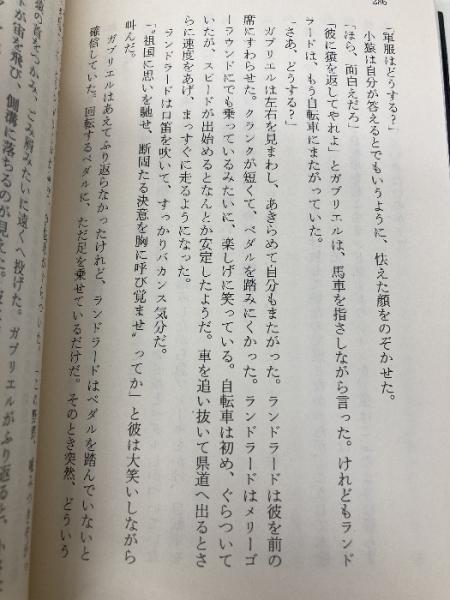 286
「軍服はどうする?」
小猿は自分が答えるとでもいうように、怯えた顔をのぞかせた。
「ほら、面白えだろ」
「彼に猿を返してやれよ」とガブリエルは、馬車を指さしながら言った。けれどもランド
ラードは、もう自転車にまたがっていた。
「さあ、どうする?」
ガブリエルは左右を見まわし、あきらめて自分もまたがった。ランドラードは彼を前の
席にすわらせた。クランクが短くて、ペダルを踏みにくかった。ランドラードはメリーゴ
ーラウンドにでも乗っているみたいに、楽しげに笑っている。自転車は初め、ぐらついて
いたが、スピードが出始めるとなんとか安定したようだ。車を追い抜いて県道へ出るとさ
らに速度をあげ、まっすぐに走るようになった。
ランドラードは口笛を吹いて、すっかりバカンス気分だ。
「〝祖国に思いを馳せ、断固たる決意を胸に呼び覚ませ〟ってか」と彼は大笑いしながら
叫んだ。
ガブリエルはあえてふり返らなかったけれど、ランドラードはペダルを踏んでいないと
確信していた。回転するペダルに、ただ足を乗せているだけだ。そのとき突然、どういう
の首をつかみ、ごみ屑みたいに遠くへ投げた。ガブリエルがふり返ると、小
が宙を飛び、側溝に落ちるのが見えた。